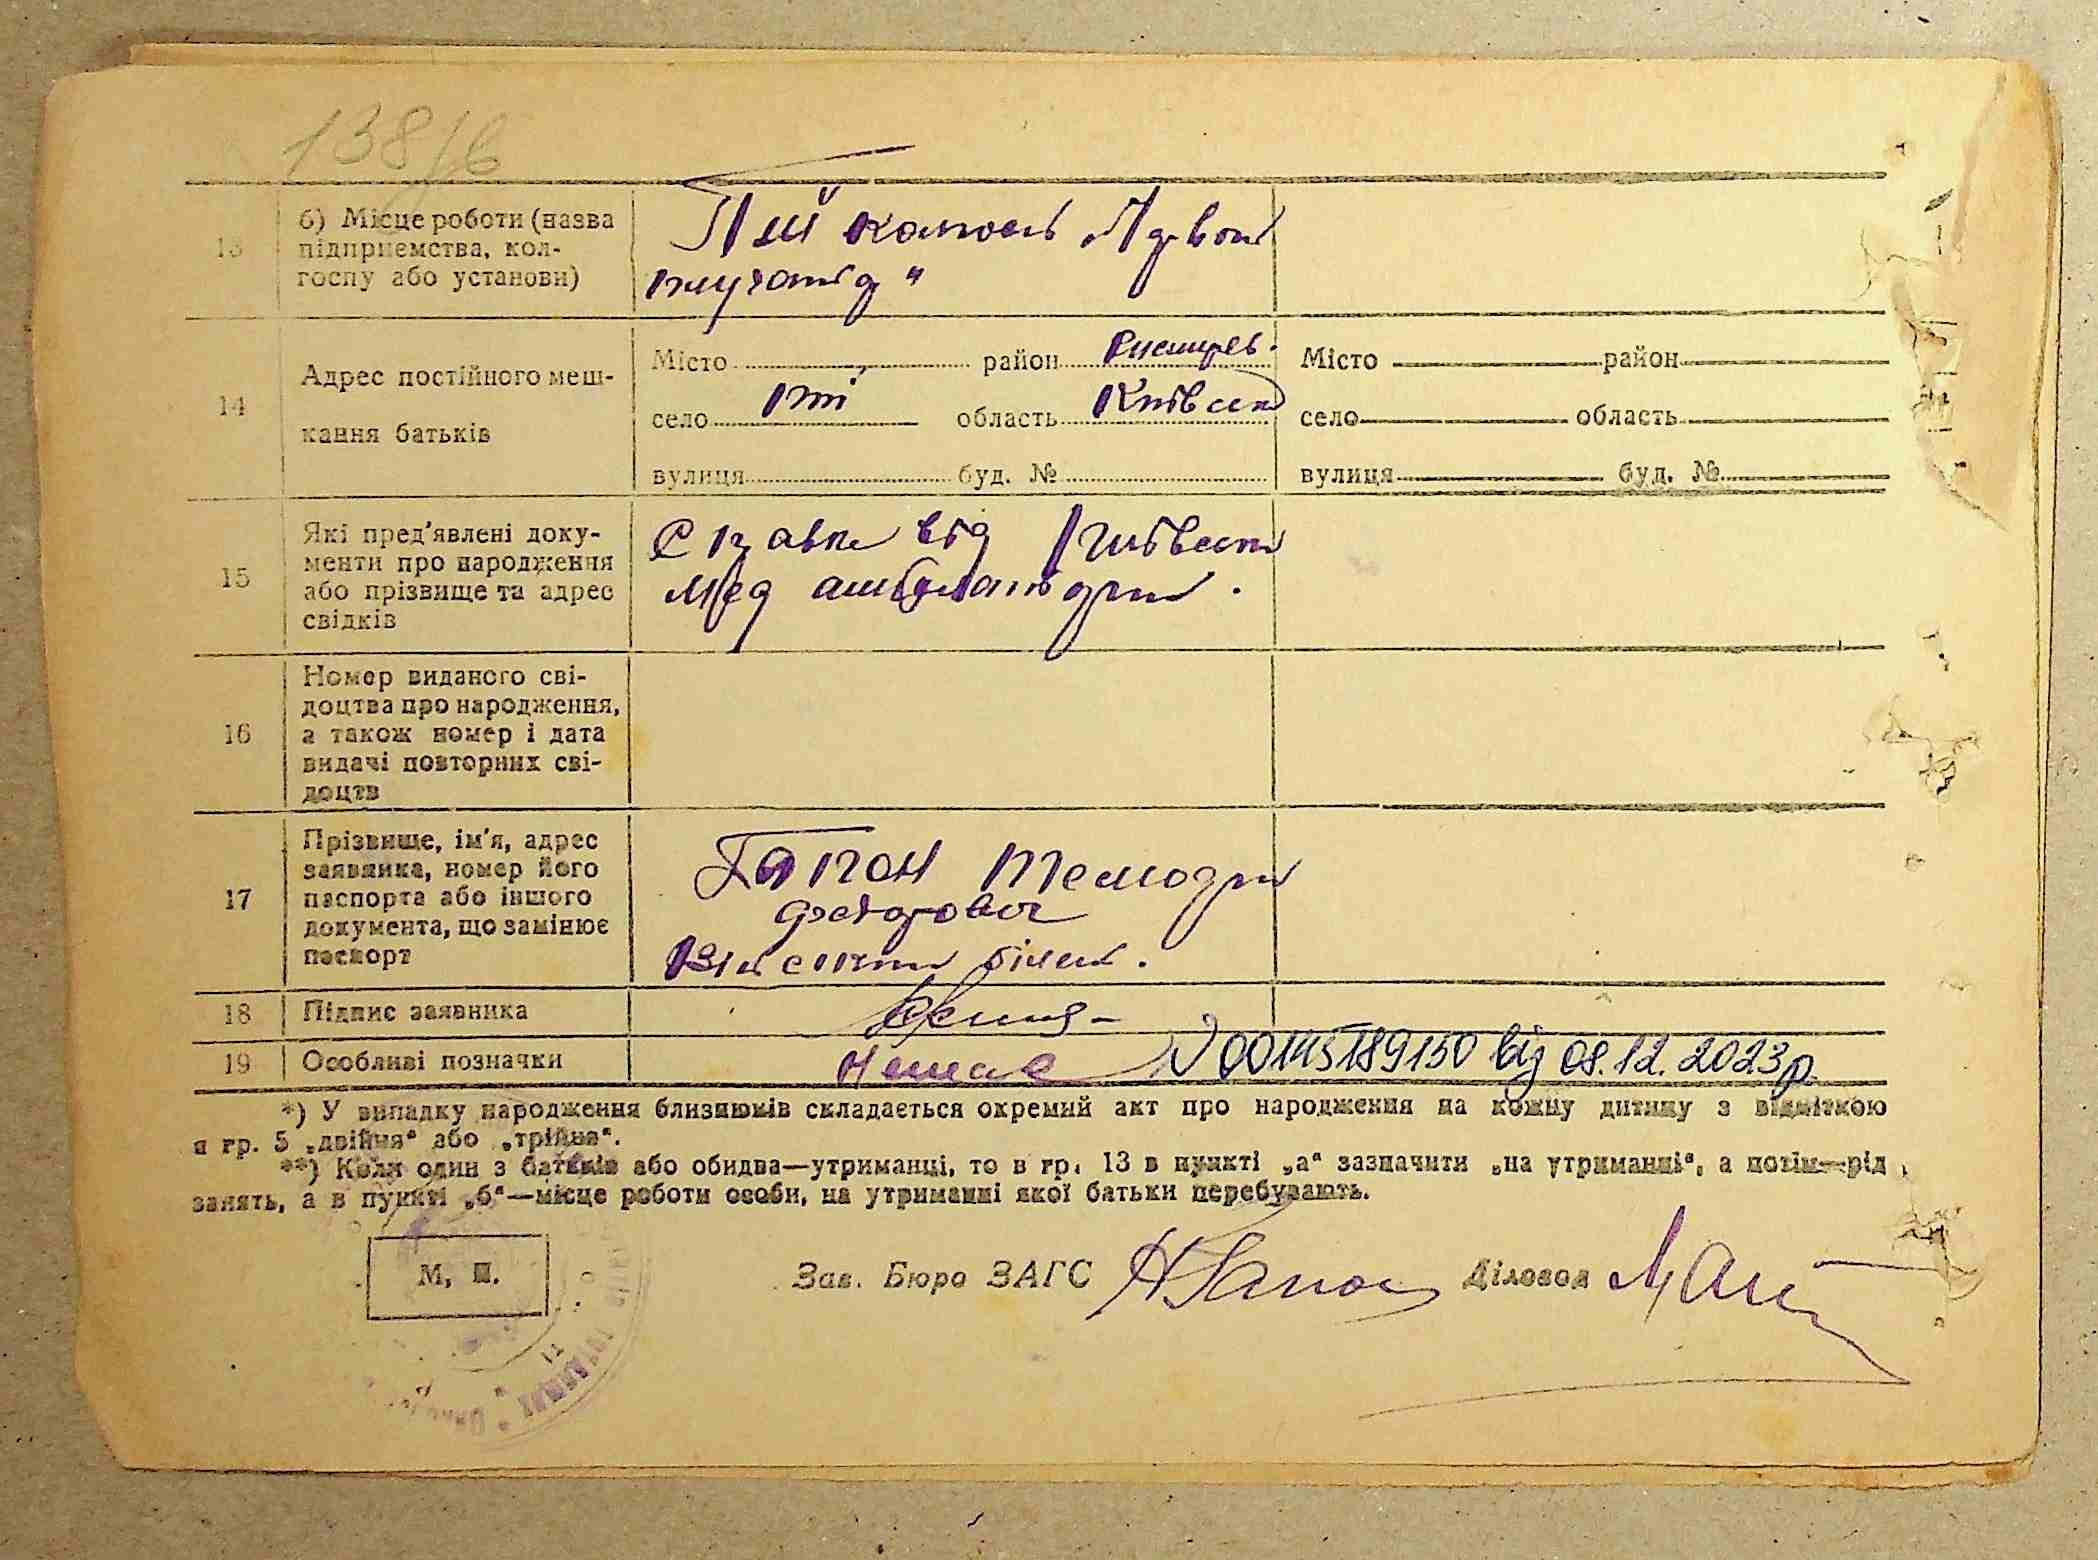 138/6
13
б) Місце роботи (назва
підприємства, кол-
госпу або установи)
14
Адрес постійного меш-
кання батьків
Місто район
село область Київськ
вулиця буд. №
Місто район
село область
вулиця буд. №
15
Які пред'явлені доку-
менти про народження
або прізвище та адрес
свідків
Справка від
Мед амбулатории.
16
Номер виданого сві-
доцтва про народження,
а також номер і дата
видачі повторних сві-
доцтв
17
Прізвище, ім'я, адрес
заявника, номер його
паспорта або іншого
документа, що замінює
паспорт
Гапон
білет.
18
Підпис заявника
19
Особливі позначки
Немає N 00145189150 від 08.12.2023р.
*) У випадку народження близнюків складається окремий акт про народження на кожну дитину з відміткою
в гр. 5 „двійня“ або „трійня“.
**) Коли один з батьків або обидва—утриманці, то в гр. 13 в пункті „а“ зазначити „на утриманні“, а потім—рід
занять, а в пункті „б“—місце роботи особи, на утриманні якої батьки перебувають.
М. П.
Зав. Бюро ЗАГС Діловод